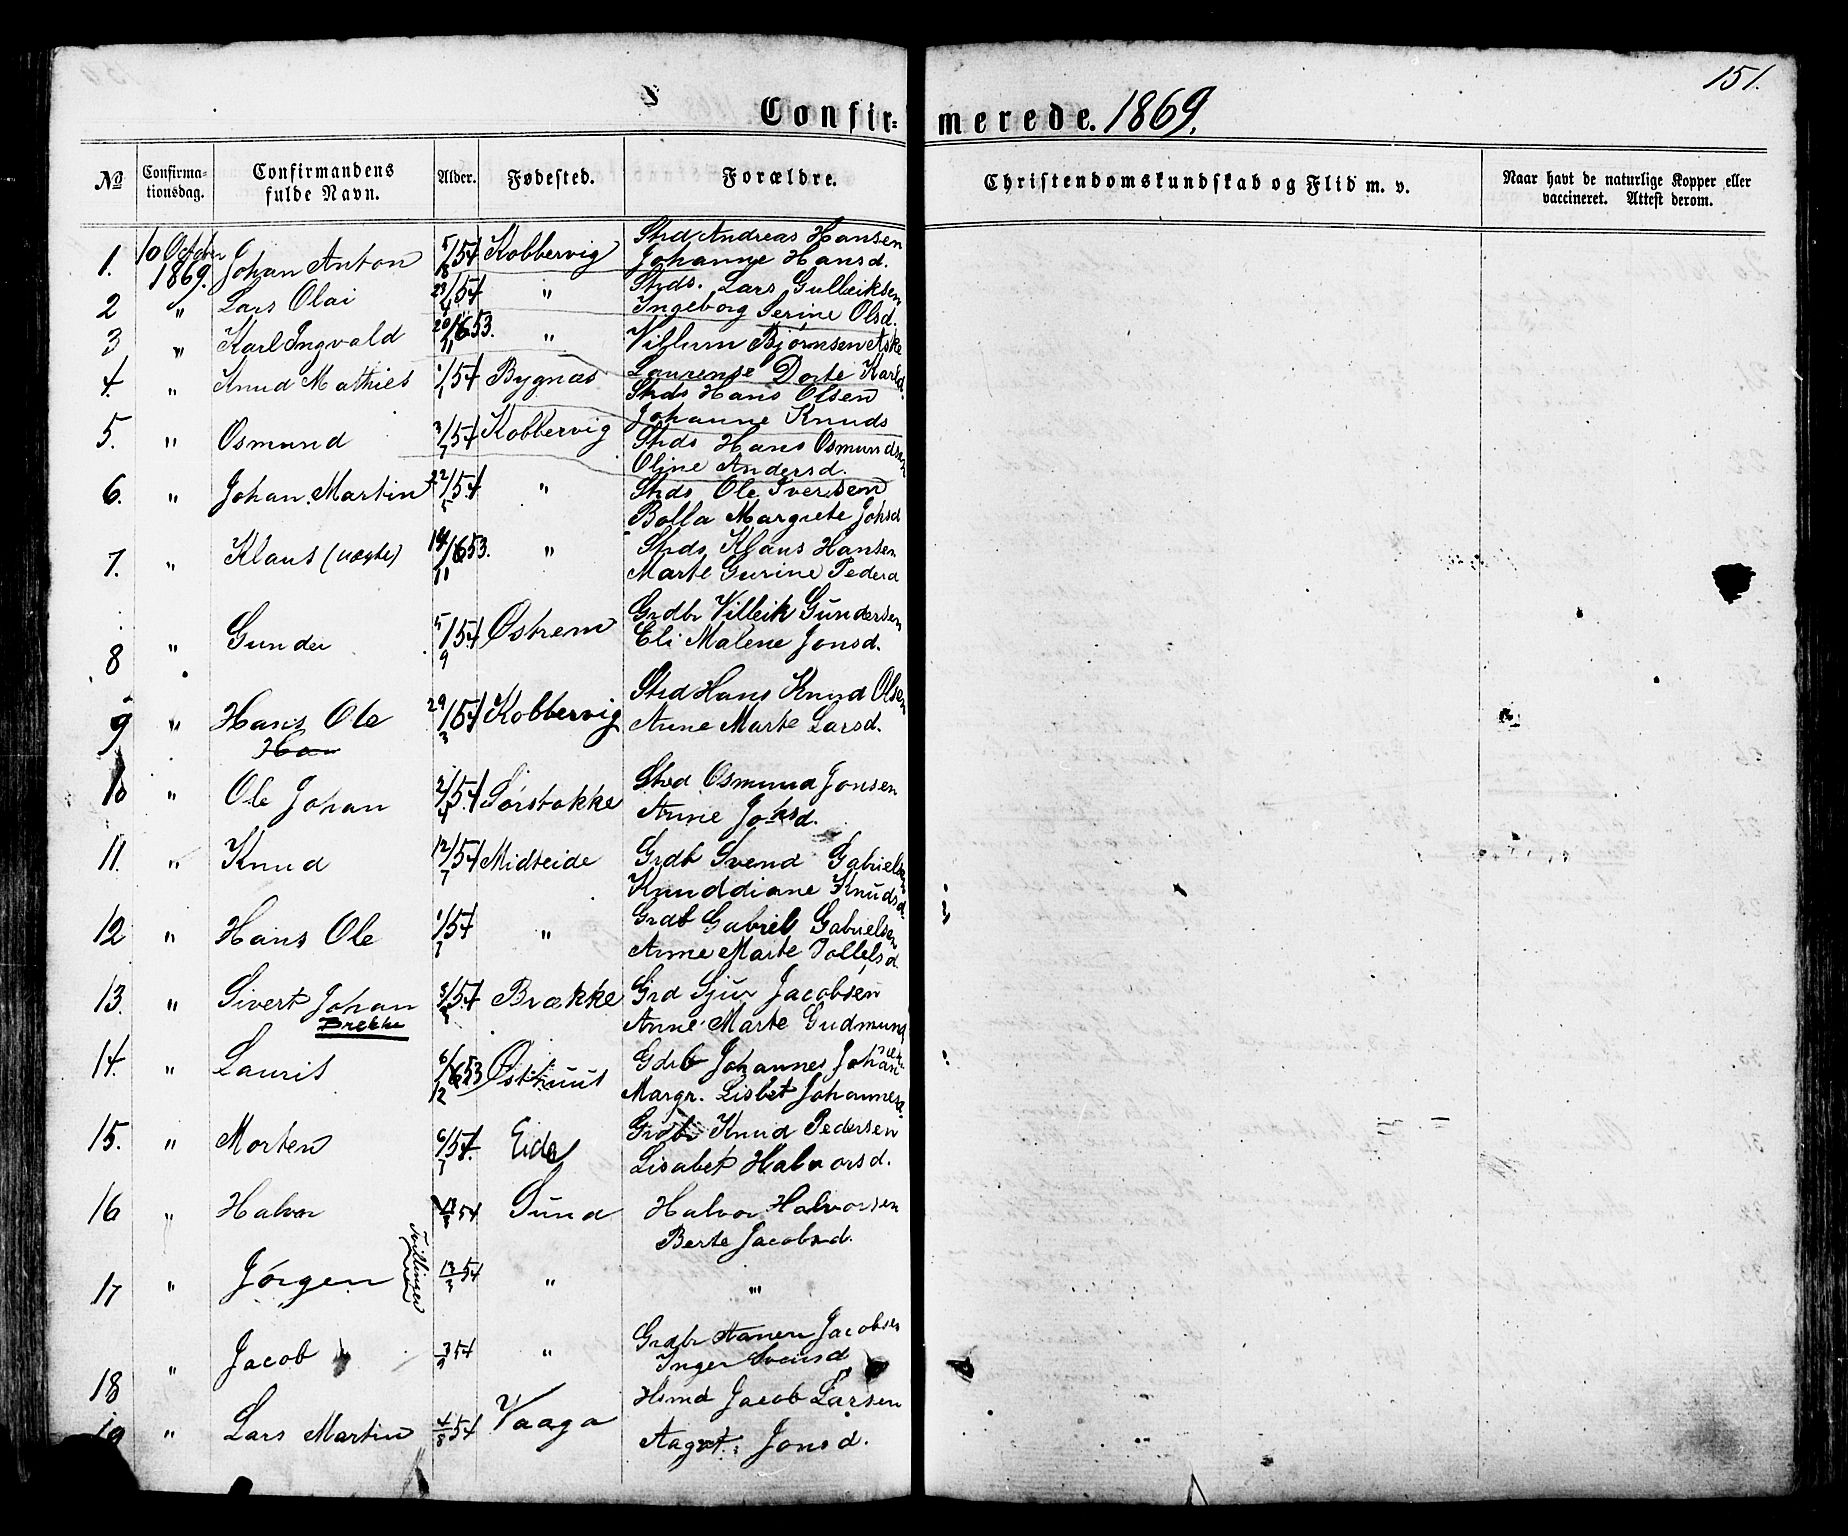 151.
Confir= merede. 1869.
No Confirma-tionsdag. Confirmandens fulde Navn. Alder. Fødested. Forældre. Christendomskundskab og Flid m. v. Naar havt de naturlige Kopper eller vaccineret. Attest derom.
1. 10 October 1869. Johan Anton 5/8 54 Kobbervig Strd Andreas Hansen
Johanne Hansd.
2 " Lars Olai 54 " Strds. Lars Gulleiksen
Ingeborg Serine Olsd.
3 " Karl Ingvald 20/11 653. " Villum Bjørnsen Aske
Laurense Dorte Karlsd.
4. " Knud Mathies 1/1 54 Bygnæs Strds Hans Olsen
Johanne Knuds
5. " Osmund 3/7 54 Kobbervig Strds Hans Osmundsen
Oline Andersd.
6. " Johan Martin 22/5 54 " Strds Ole Iversen
Bolla Margrete Johsd
7. " Klaus (uægte) 14/11 653. " Strds Klaus Hansen
Marte Gurine Pedersd
8 " Gunder 5/9 54 Østrem Grdbr Villeik Gundersen
Eli Malene Jonsd.
9 " Hans Ole 29/3 54 Kobbervig Strd Hans Knud Olsen
Han Anne Marte Larsd.
10 " Ole Johan 2/4 54 Sørstokke Strd Osmund Jonsen
Anne Johsd.
11. " Knud 12/7 54 Midteide Grdb Svend Gabrielsen
Knuddiane Knudsd.
12 " Hans Ole 54 " Grdb Gabriel Gabrielsen
Anne Marte Tollefsd.
13. " Sivert Johan 54 Brække Grd Sjur Jacobsen
Brekke Anne Marte Gudmunds
14. " Lauris 6/12 653 Østhuus Gdrb Johannes Johansen
Margr. Lisbet Johannesd.
15. " Morten 6/7 54. Eide Grdbr Knud Pedersen
Lisabet Halvorsd.
16 " Halvor 13/3 54 Sund Halvor Halvorsen
Berte Jacobsd.
Tvillinger
17 " Jørgen 13/3 54 " "
18 " Jacob 54 " Grdbr Jacobsen
Inger Svensd
19 " Lars Martin 4/8 54 Vaaga Hsmd Jacob Larsen
Aagot Jonsd.